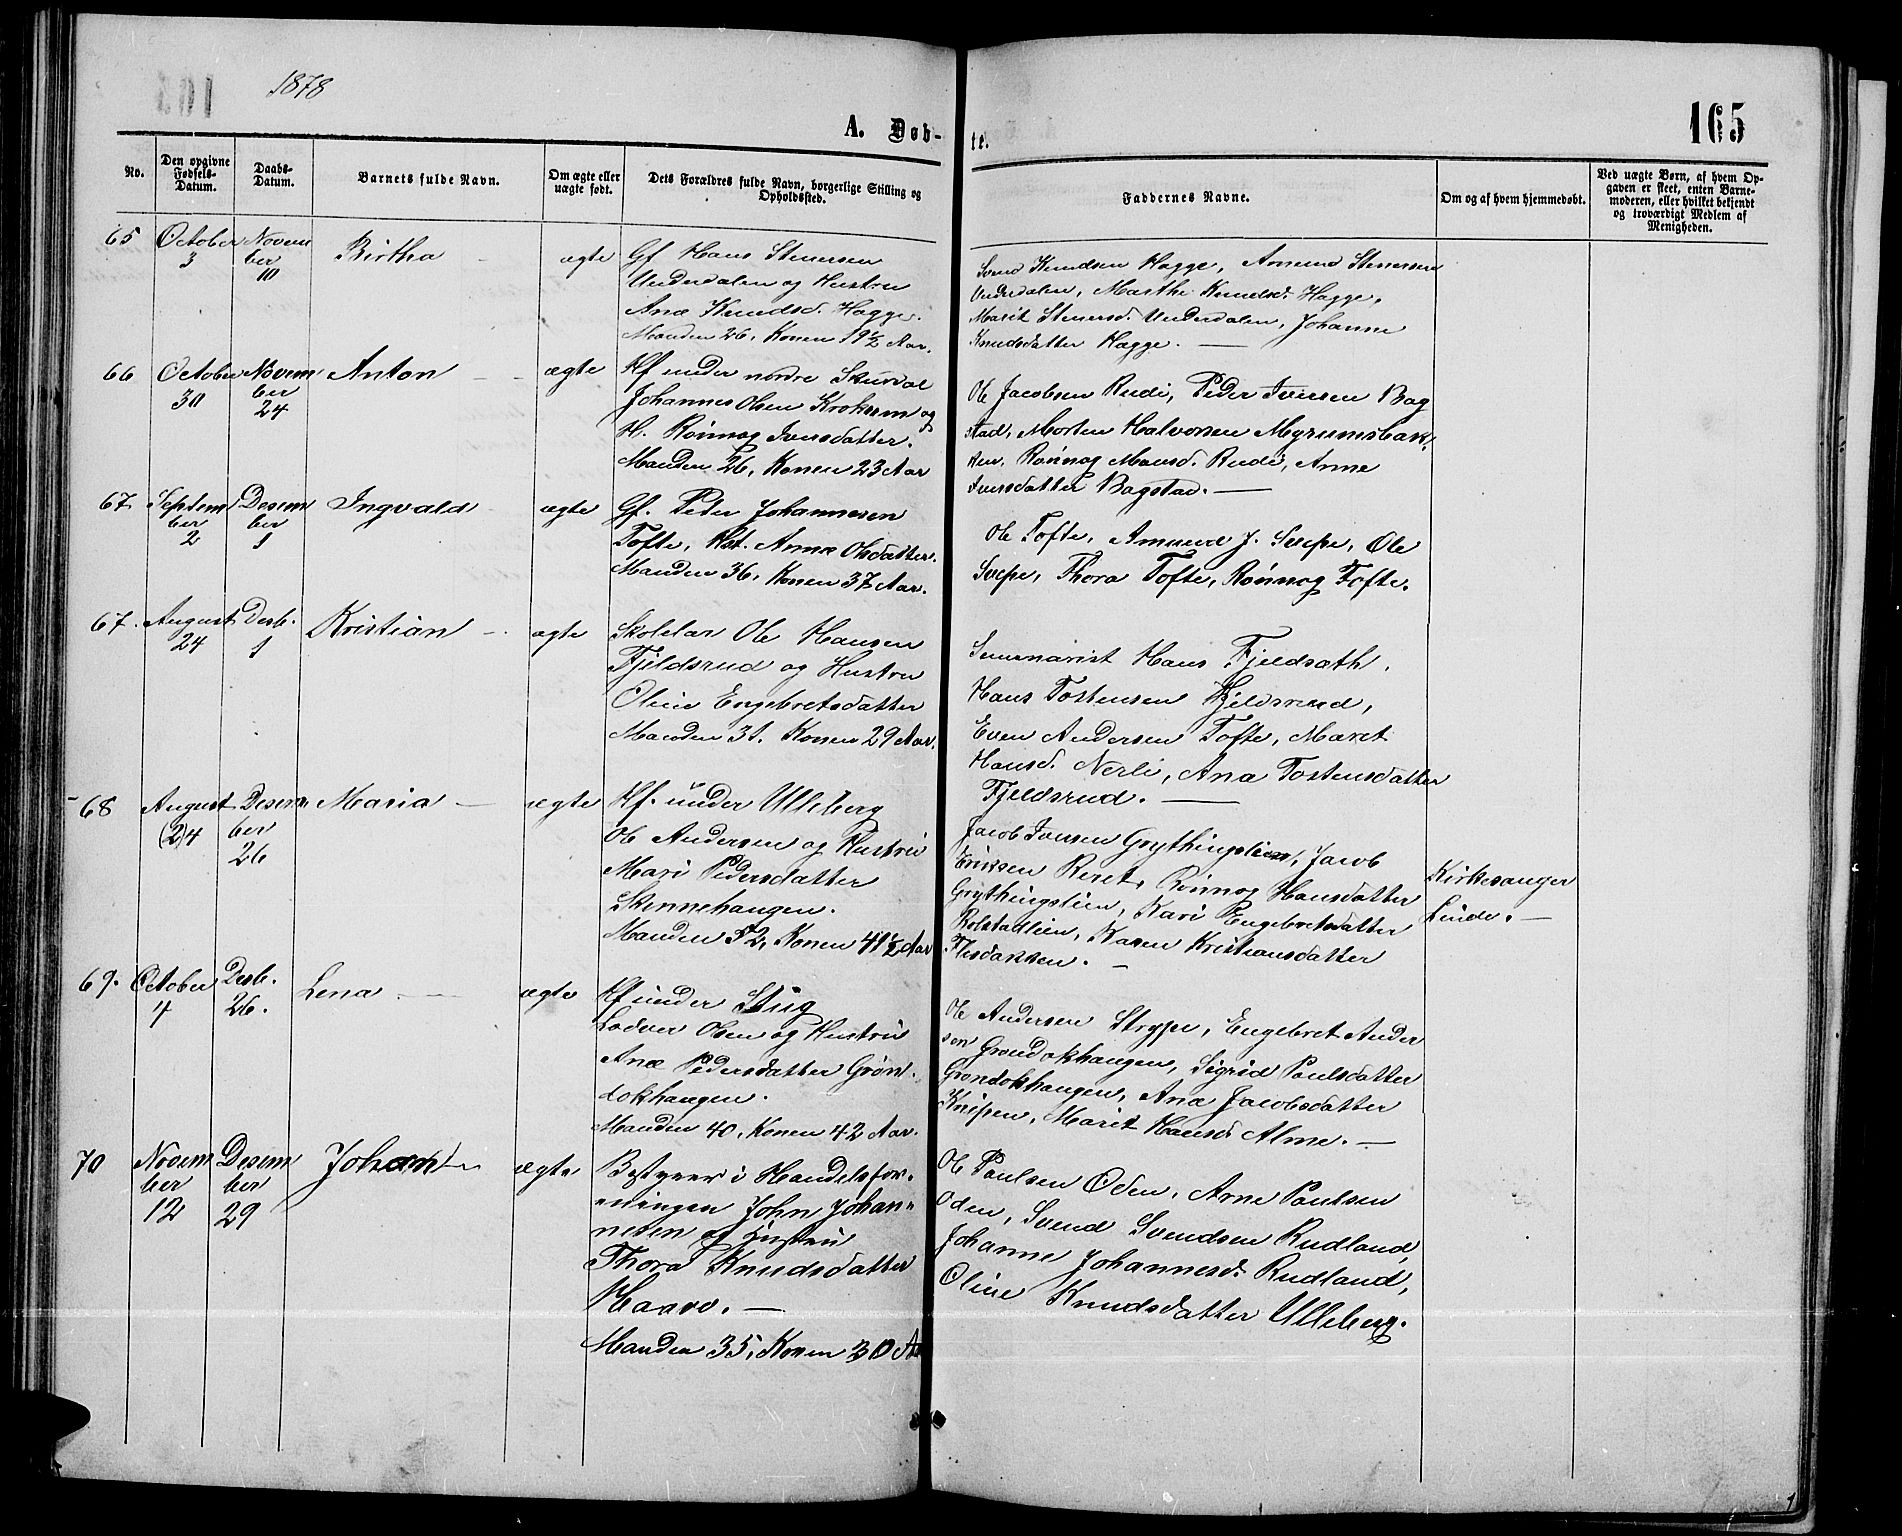 1878
165
A. Døb-
te.
No.
Den opgivne Fødsels-Datum.
Daabs-Datum.
Barnets fulde Navn.
Om ægte eller uægte født.
Dets Forældres fulde Navn, borgerlige Stilling og Opholdssted.
Faddernes Navne.
Om og af hvem hjemmedøbt.
Ved uægte Børn, af hvem Op-
gaven er skeet, enten Barne-
moderen, eller hvilket bekjendt
og troværdigt Medlem af
Menigheden.
65 October 3 Novem ber 10 Birtha ægte
Gf Hans Stenersen
Underdalen og Hustru
Ane Knudsd. Hagge.
Manden 26, Konen 19 1/2 Aar.
Svend Knudsen Hagge, Amund Stenersen
Underdalen, Marthe Knudsd. Hagge,
Marit Stenersd. Underdalen, Johanne
Knudsdatter Hagge. —
66 October 30 Novem ber 24 Anton ægte
Hf under nordre Skurdal
Johannes Olsen Kroksum og
H. Rønnog Iversdatter.
Manden 26, Konen 23 Aar
Ole Jacobsen Rudi, Peder Iversen Bag
stad, Morten Halvorsen Myrumsbak,
ken, Rønnog Monsd. Rudi, Anne
Iversdatter Bagstad. —
67. Septem ber 2 Desem ber 1 Ingvald ægte
Gf. Peder Johannesen
Tofte, Hst. Anne Olsdatter.
Manden 36, Konen 37 Aar.
Ole Tofte, Amund J. Svepe, Ole
Svepe, Thora Tofte, Rønnog Tofte.
67. August 24 Desb. 1 Kristian ægte
Skolelær Ole Hansen
Fjeldsrud og Hustru
Oline Engebretsdatter
Manden 31. Konen 29 Aar.
Seminarist Hans Fjeldsæth,
Hans Tostensen Fjeldsrud,
Even Andersen Tofte, Maret
Hansd. Nerli, Ana Tostensdatter
Fjeldsrud. —
68 August (2)4 Desem ber 26 Maria — ægte
Hf. under Ulleberg
Ole Andersen og Hustru
Mari Pedersdatter
Skinnehaugen.
Manden 32, Konen 41 1/2 Aar
Jacob Iversen Grythingslien, Jacob
Eriksen Reret, Rønnog Hansdatter
Grythingslien, Kari Engebretsdatter
Rolstadlien, Karen Kristiansdatter
Flesbakken. —
Kirkesanger
Linde. —
69. October 4 Desb. 26. Lena — ægte
Hf under Stig
Lodver Olsen og Hustru
Ane Pedersdatter Grøn-
dokhaugen.
Manden 40, Konen 42 Aar.
Ole Andersen Strype, Engebret Ander
sen Grøndokhaugen, Sigrid Paulsdatter
Grøndokhaugen, Ane Jacobsdatter
Knipen, Marit Hansd. Alme. —
70 Novem ber 12 Desem ber 29 Johan ægte
Bestyrer i Handelsfor-
eningen John Johan-
nesen og Hustru
Thora Knudsdatter
Haave. —
Manden 35, Konen 30 Aa
Ole Paulsen Oden, Arne Paulsen
Oden, Svend Svendsen Rudland,
Johanne Johannesd. Rudland,
Oline Knudsdatter Ulleberg.